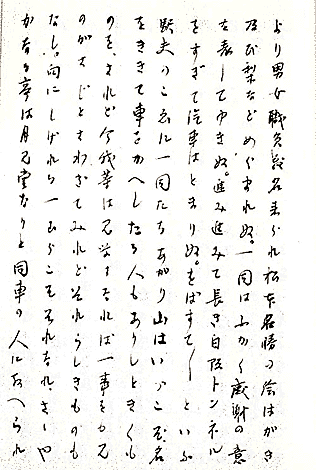 より男女職員数名来られ松本名勝の絵はがき
及び梨などめぐまれぬ。一同はふかく感謝の意
を表してゆきぬ。進み進みて長き自阪トンネル
をすぎて汽車はとまりぬ。をばすて〱といふ
駅夫のこゑに一同たちあがり山はいづこ 名
をききて車をかへしたる人もありしときくも
のを、されど今我等は見学なれば一事をも見
のがさじとさわぎてみれどそれらしきものも
なし。向にしげれる一むらこそそれなれ、さゝや
かなる亭は月見堂なりと同車の人にをへられ